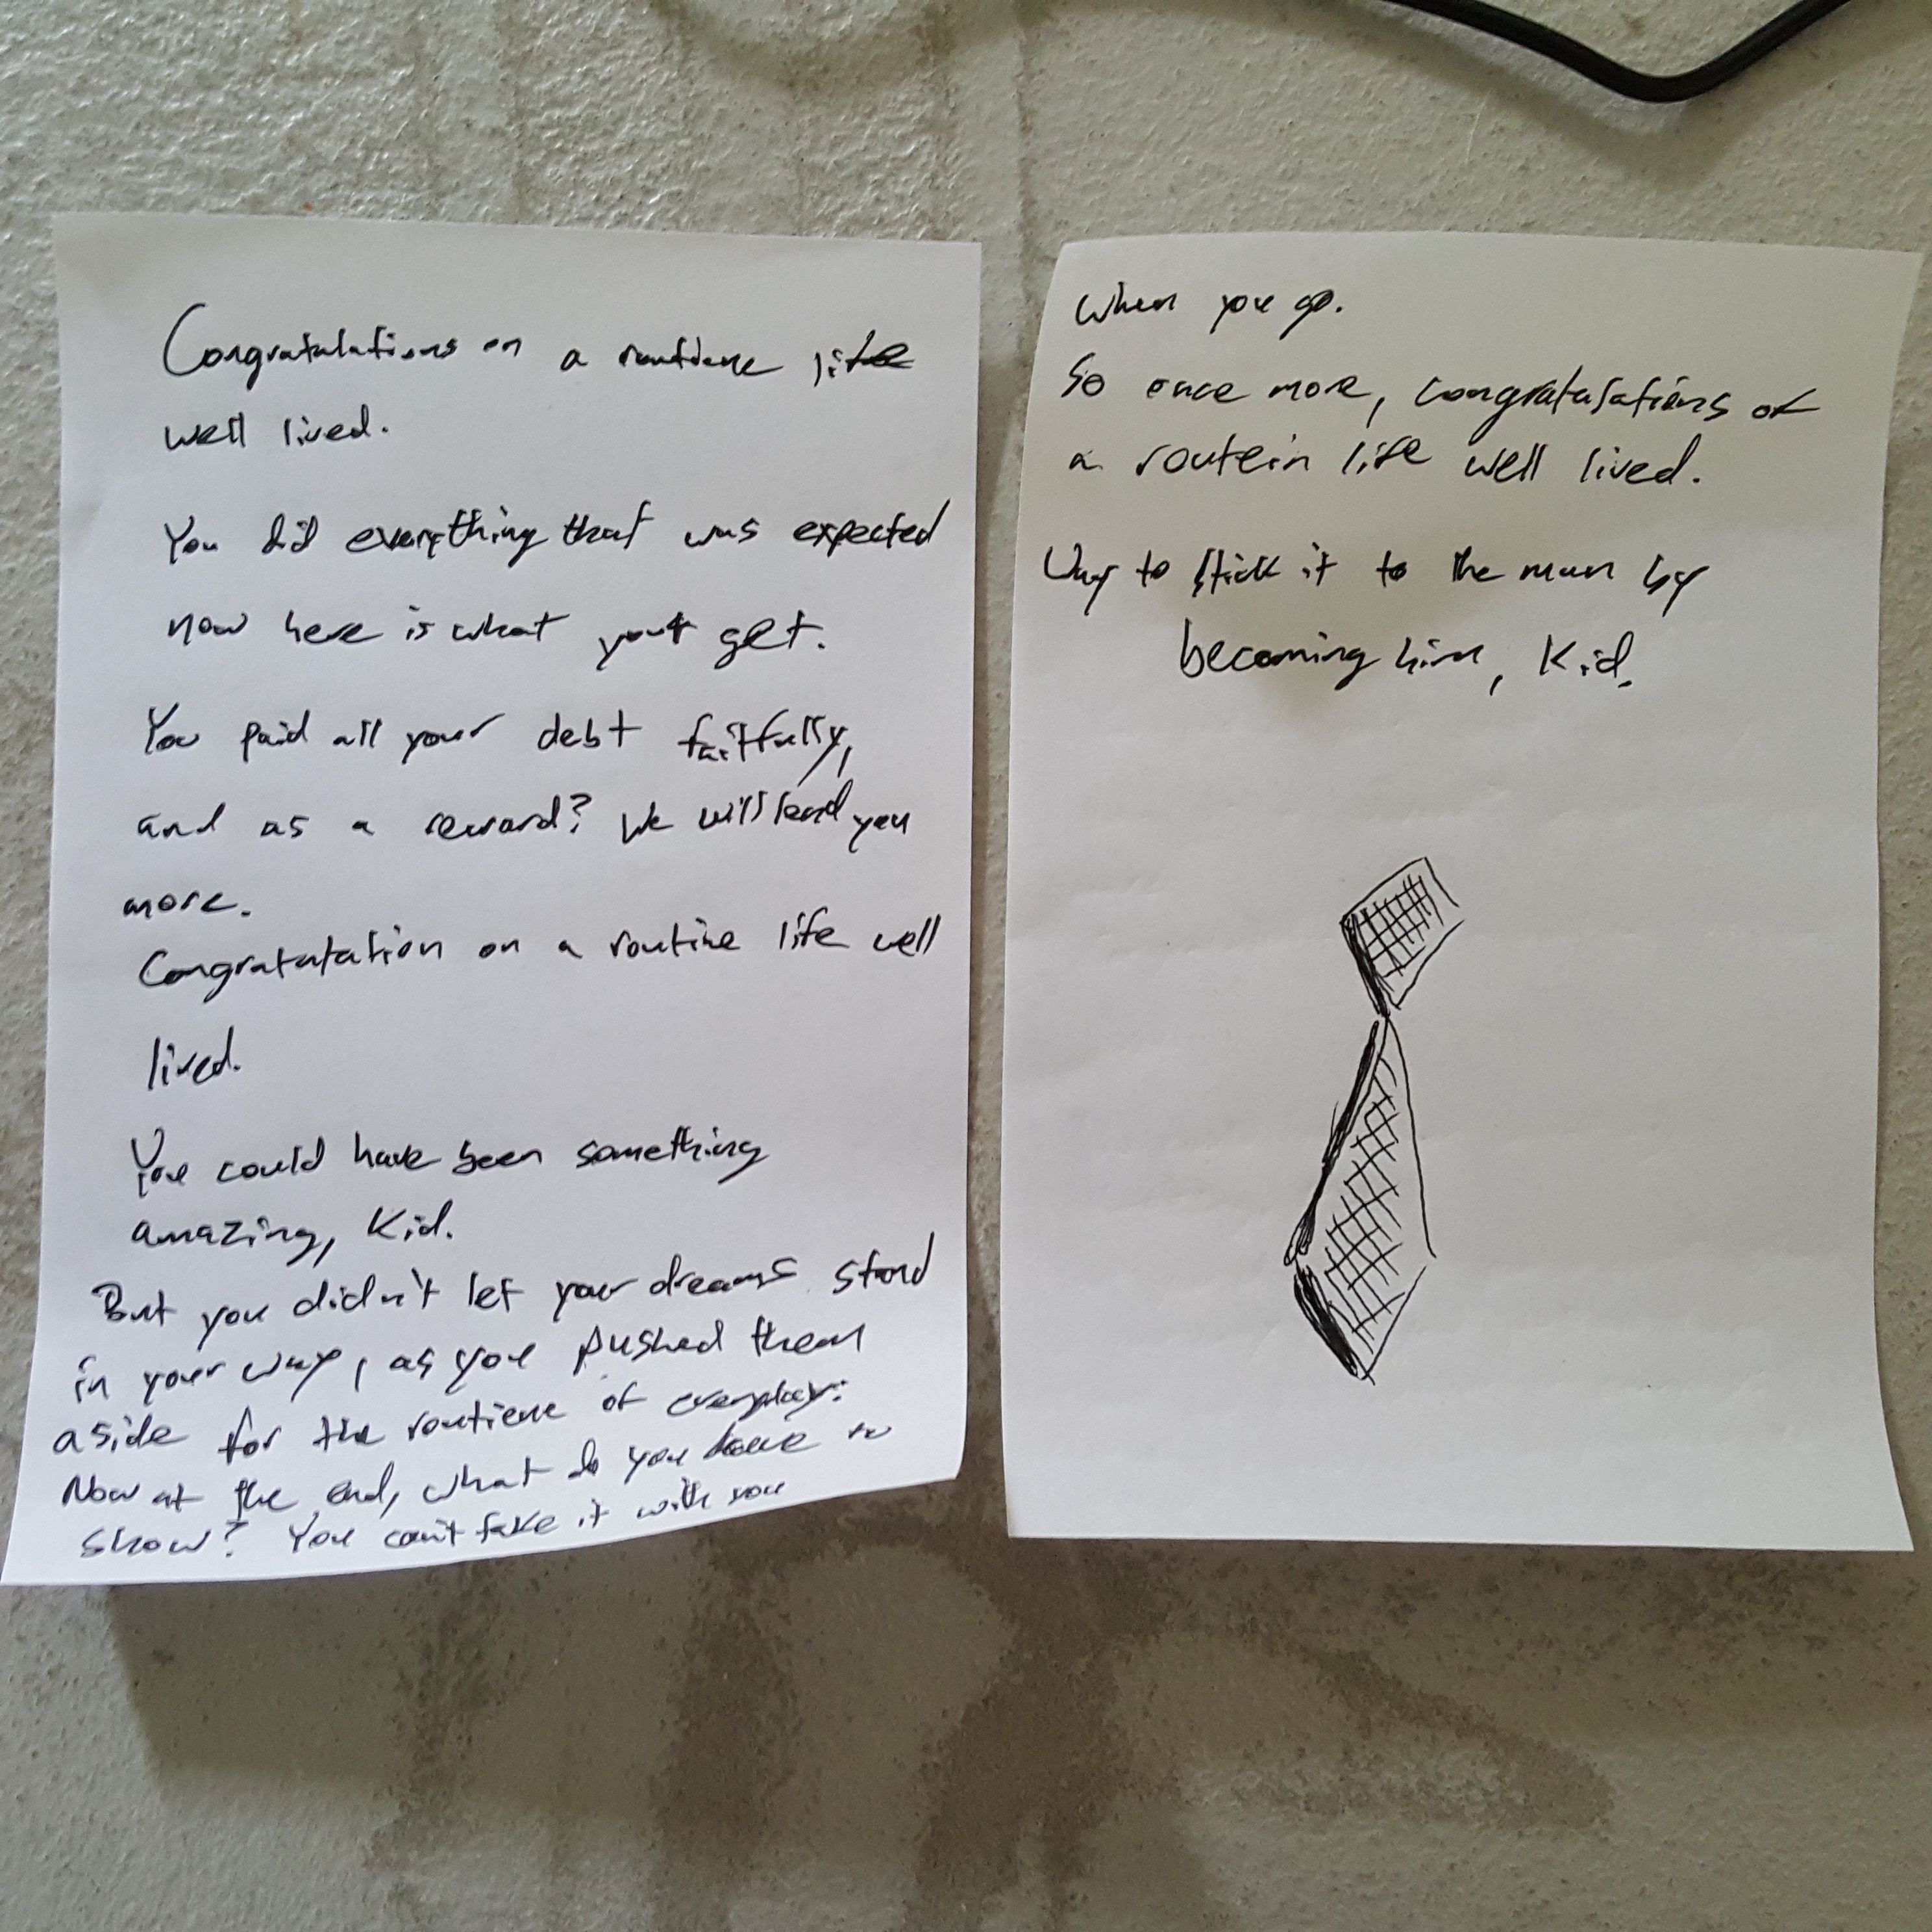 Congratulations on a routiene life
well lived.
You did everything that was expected
now here is what your get.
You paid all your debt faitfully,
and as a reward? We will lend you
more.
Congratutation on a routine life well
lived.
You could have been something
amazing, Kid.
But you didn't let your dreams stand
in your way, as you pushed them
aside for the routiene of everyday.
Now at the end, what do you have to
show? You can't take it with you
When you go.
So once more, congratulations of
a routein life well lived.
Way to stick it to the man by
becoming him, Kid.